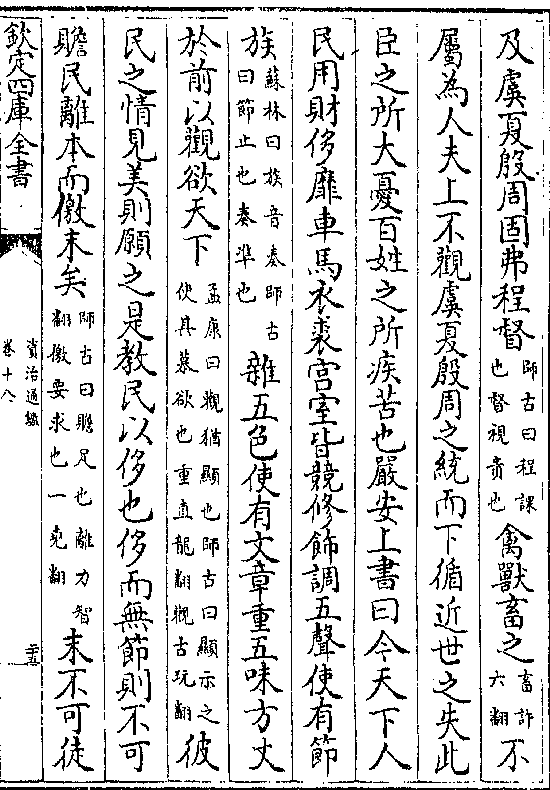 及虞夏殷周固弗程督師古曰程課也督視責也禽獸畜之畜許六翻不
屬為人夫上不觀虞夏殷周之統而下循近世之失此
臣之所大憂百姓之所疾苦也嚴安上書曰今天下人
民用財侈靡車馬衣裘宮室皆競修飾調五聲使有節
族蘇林曰族音奏師古曰節止也奏準也雜五色使有文章重五味方丈
於前以觀欲天下孟康曰觀猶顯也師古曰顯示之使其慕欲也重直龍翻觀古玩翻彼
民之情見美則願之是教民以侈也侈而無節則不可
贍民離本而儌末矣師古曰贍足也離力智翻儌要求也一堯翻末不可徒
欽定四庫全書
資治通鑑
卷十八
二十五